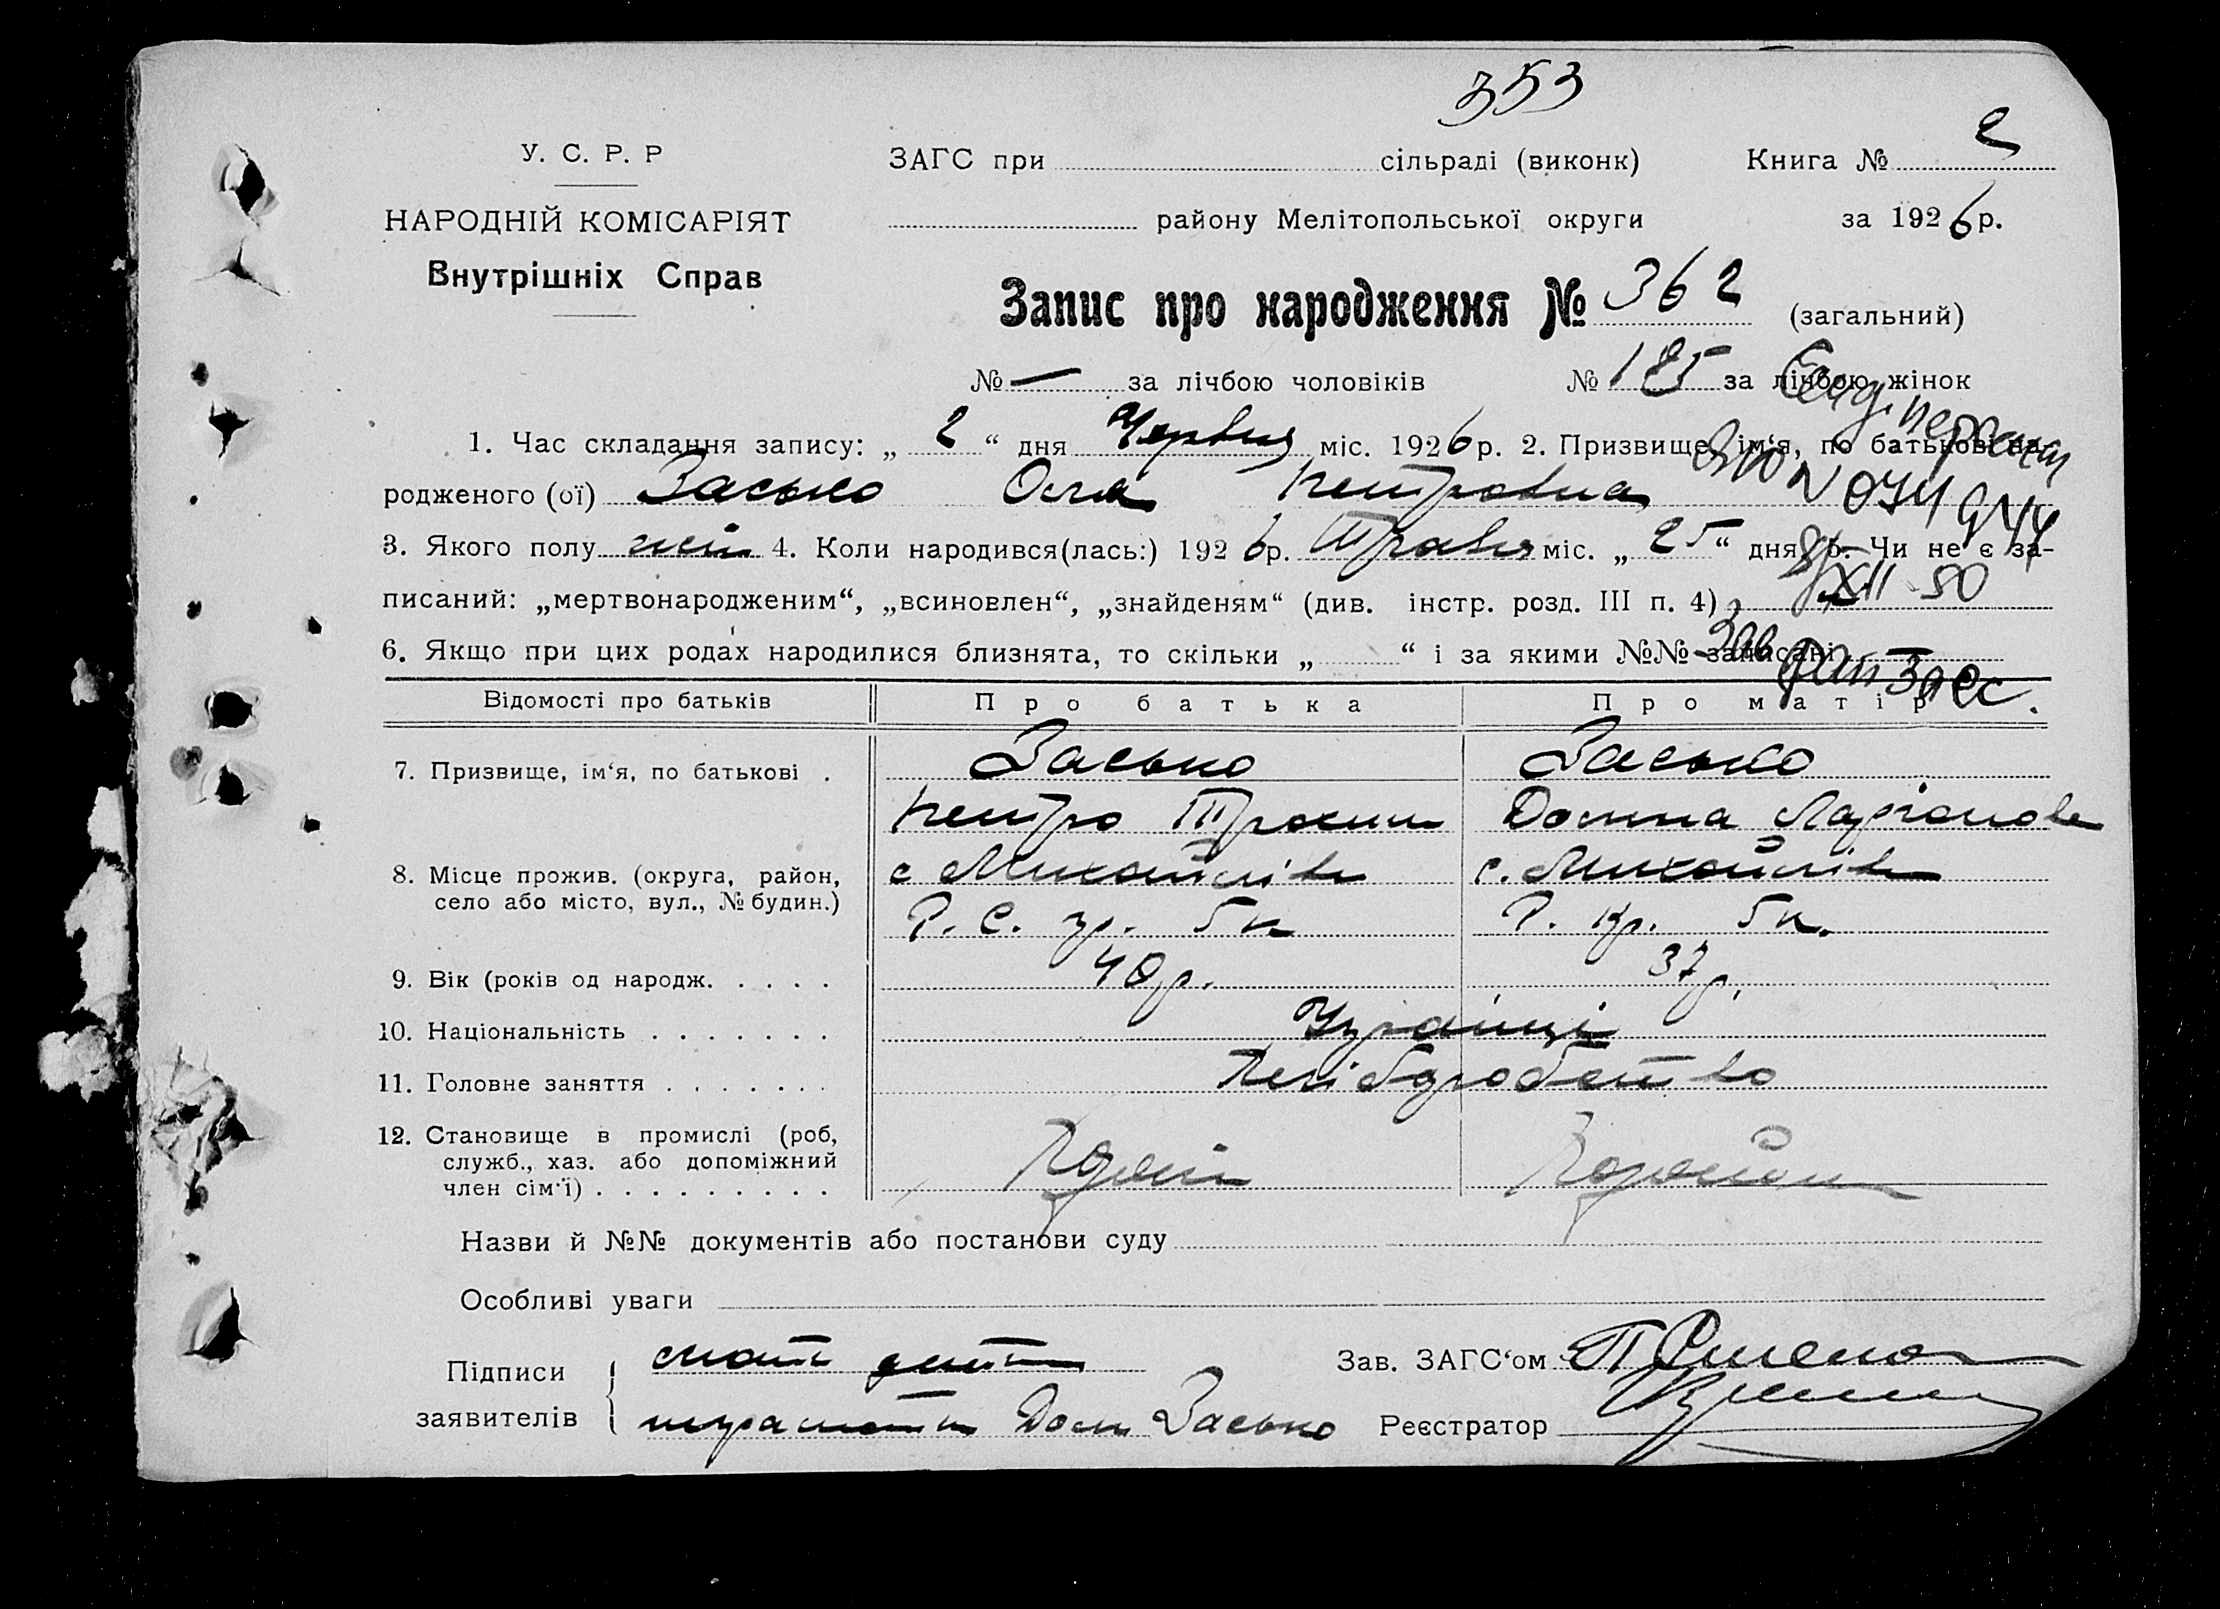 353
У. С. Р. Р
ЗАГС при сільраді (виконк) Книга № 2
НАРОДНІЙ КОМІСАРІЯТ
району Мелітопольської округи за 1926 р.
Внутрішніх Справ
Запис про народження № 362 (загальний)
№ — за лічбою чоловіків № 185 за лічбою жінок
1. Час складання запису: „ 2 “ дня Червня міс. 1926 р. 2. Призвище, ім‘я, по батькові на-
родженого (ої) Засько Ольга Петровна
3. Якого полу жін 4. Коли народився(лась:) 1926 р. Травня міс. „ 25 “ дня 5. Чи не є за-
писаний: „мертвонародженим“, „всиновлен“, „знайденям“ (див. інстр. розд. III п. 4)
XII 50
6. Якщо при цих родах народилися близнята, то скільки „ “ і за якими №№ записані
Зав Рай Загс.
Відомості про батьків Про батька Про матір
7. Призвище, ім‘я, по батькові . Засько Засько
Петро Домна
8. Місце прожив. (округа, район, село або місто, вул., № будин.) с Михайлівк с. Михайлівк
5 к 5 к.
9. Вік (років од народж. . . . . 40 р. 37 р.
10. Національність . . . . . . . Українці
11. Головне заняття . . . . . . . Хліборобство
12. Становище в промислі (роб, служб., хаз. або допоміжний член сім‘ї) . . . . . . . . .
Назви й №№ документів або постанови суду
Особливі уваги
Підписи мати
Зав. ЗАГС‘ом
заявителів Дом Засько Реєстратор